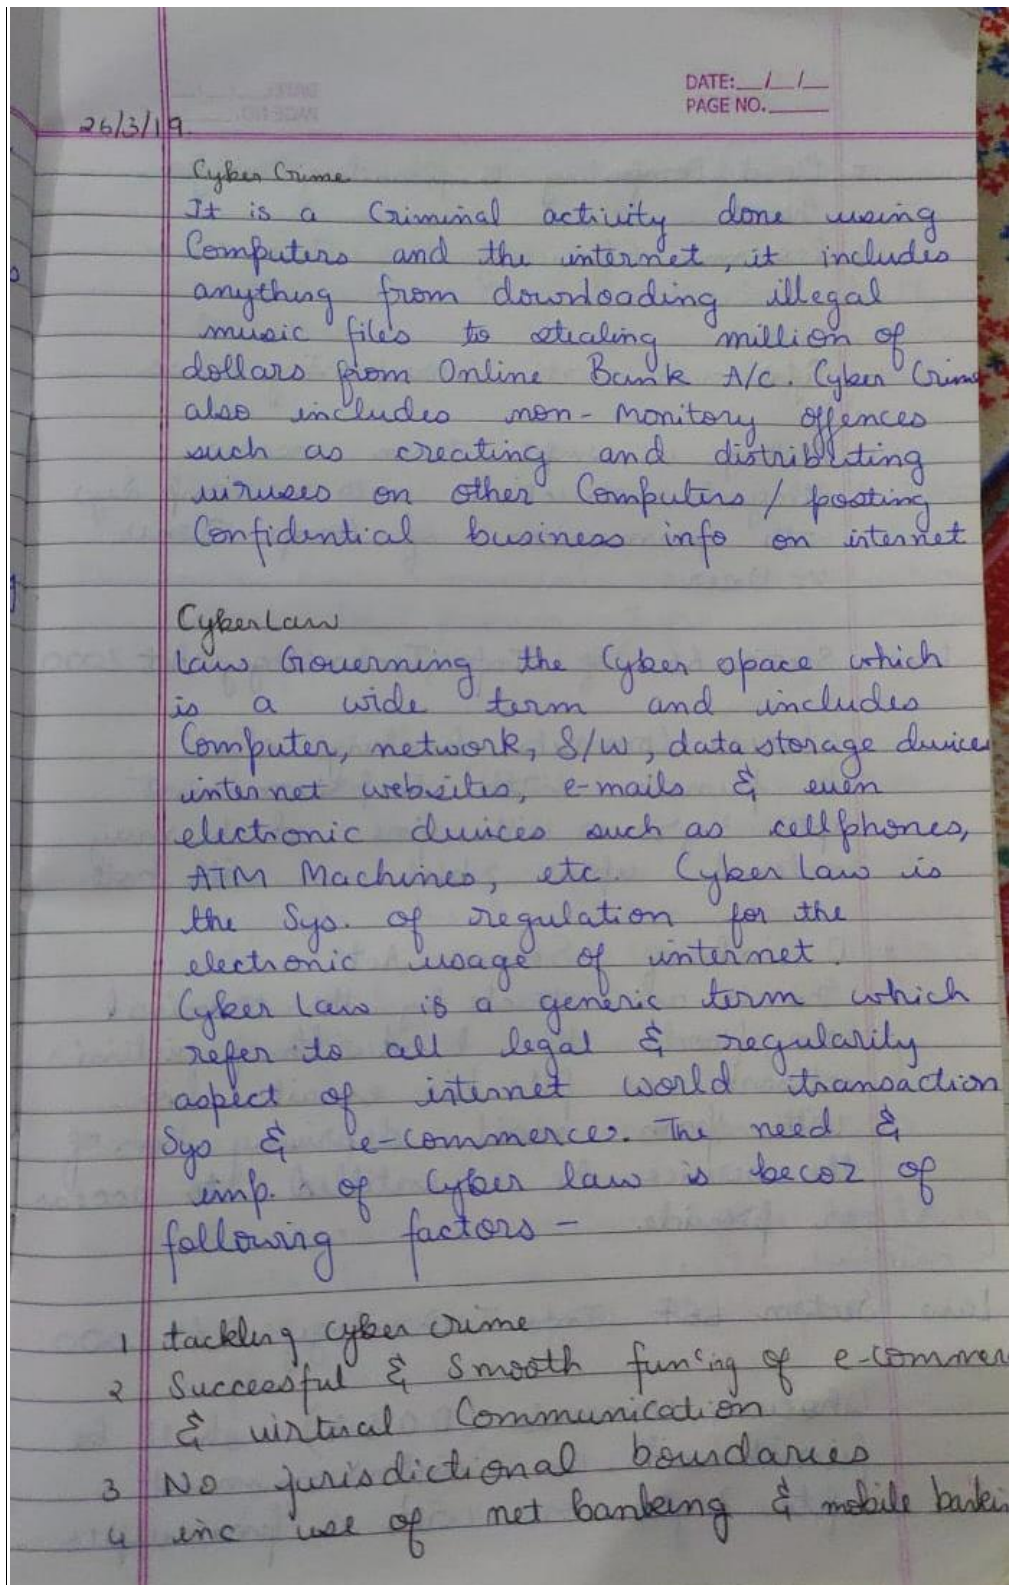 DATE: __/__/__
PAGE NO. ______
26/3/19.
Cyber Crime
It is a Criminal activity done using
Computers and the internet, it includes
anything from downloading illegal
music files to stealing million of
dollars from Online Bank A/C. Cyber Crime
also includes non-Monitory offences
such as creating and distributing
viruses on other Computers / posting
Confidential business info on internet
Cyber Law
Law Governing the Cyber space which
is a wide term and includes
Computer, network, S/W, data storage devices
internet websites, e-mails & even
electronic devices such as cellphones,
ATM Machines, etc. Cyber law is
the Sys. of regulation for the
electronic usage of internet.
Cyber Law is a generic term which
refer to all legal & regularity
aspect of internet world transaction
Sys & e-commerces. The need &
imp. of Cyber law is becoz of
following factors -
1 tackling cyber crime
2 Successful & Smooth fun'ing of e-commer
& virtual Communication
3 No jurisdictional boundaries
4 inc use of net banking & mobile bankin